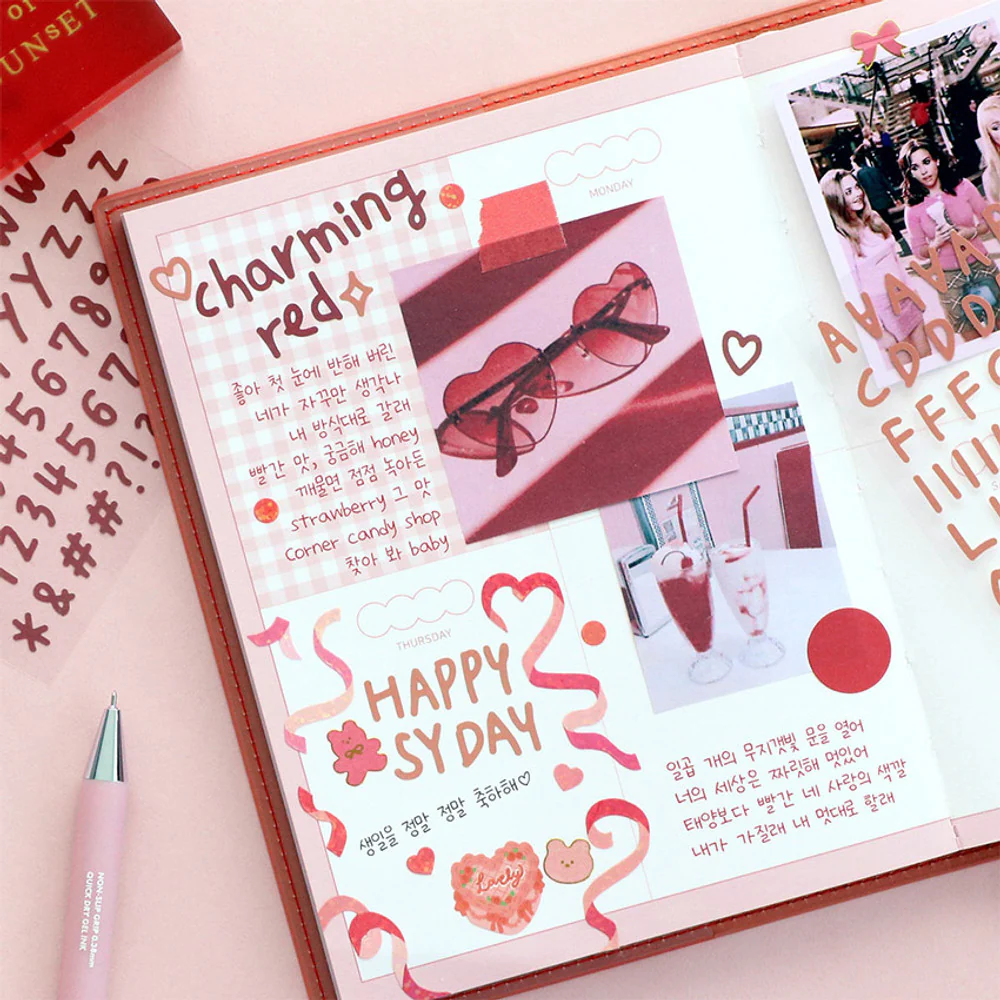 OF
SUNSET
charming
red
좋아 첫 눈에 반해 버린
네가 자꾸만 생각나
내 방식대로 갈래
빨간 맛, 궁금해 honey
깨물면 점점 녹아든
strawberry 그 맛
Corner candy shop
찾아 봐 baby
MONDAY
THURSDAY
HAPPY
SY DAY
생일을 정말 정말 축하해♡
Lovely
일곱 개의 무지갯빛 문을 열어
너의 세상은 짜릿해 멋있어
태양보다 빨간 네 사랑의 색깔
내가 가질래 내 멋대로 할래
NON-SLIP GRIP 0.38mm
QUICK DRY GEL INK
YYZZ
5678
4567
1234
*&##?!?
AAAAA
CDDD
FFF
IIIII
L